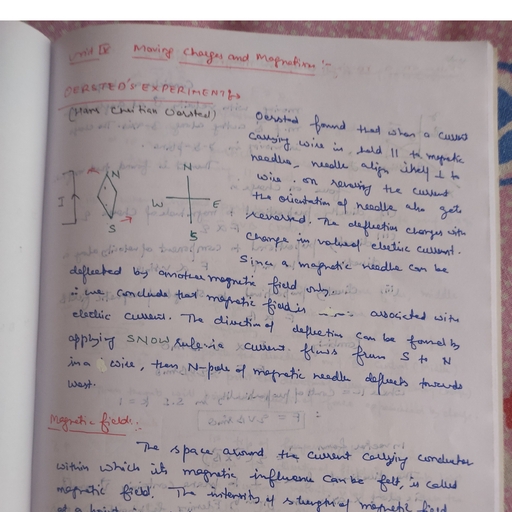 Unit IV Moving Charges and Magnetism :-
OERSTED'S EXPERIMENT :-
(Hans Christian Oersted)
Oersted found that when a current
carrying wire is held || to magnetic
needle, needle align itself ⊥ to
wire. on reversing the current
the orientation of needle also gets
reversed. The deflection changes with
change in value of electric current.
N
I
S
N
W E
S
Since a magnetic needle can be
deflected by another magnetic field only.
∴ we conclude that magnetic field is associated with
electric current. The direction of deflection can be found by
applying SNOW rule i.e current flows from S to N
in a wire, then N-pole of magnetic needle deflects towards
west.
Magnetic field :-
The space around the current carrying conductor
within which its magnetic influence can be felt, is called
magnetic field. The intensity of strength of magnetic field
at a point